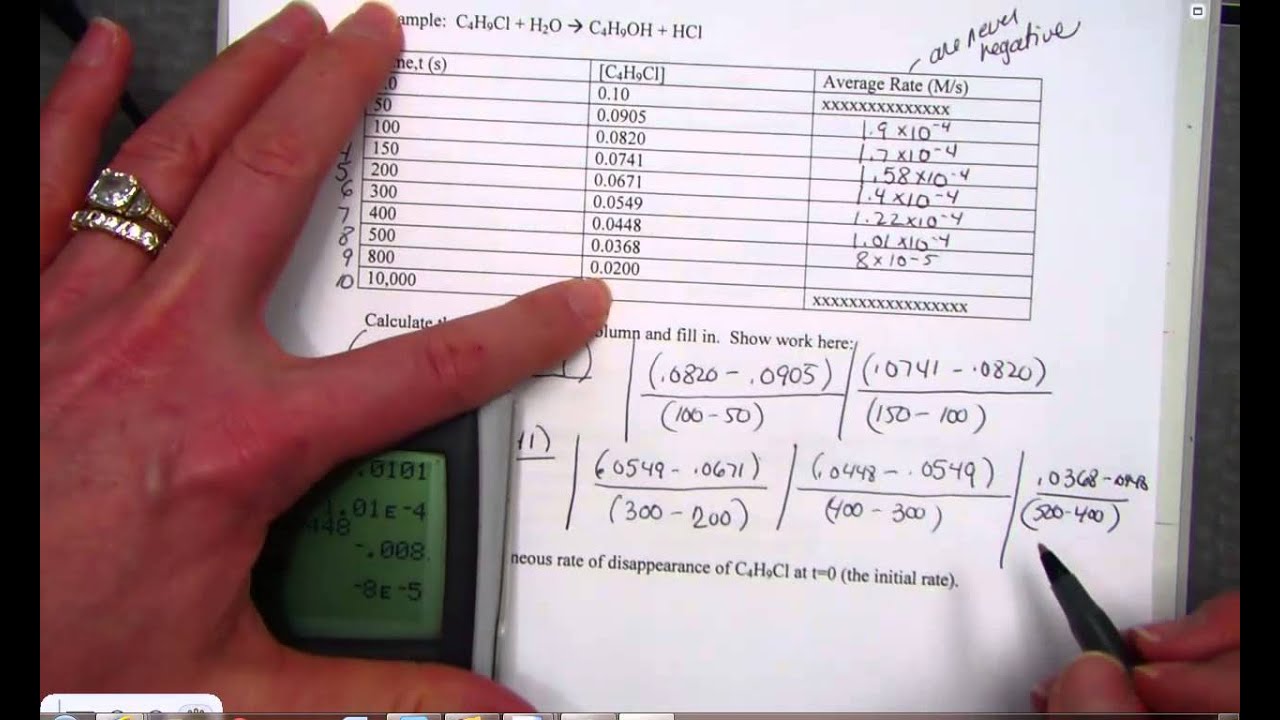 ample: C₄H₉Cl + H₂O → C₄H₉OH + HCl
are never
negative
ne,t (s) [C₄H₉Cl] Average Rate (M/s)
.0 0.10 xxxxxxxxxxxxxx
50 0.0905 1.9 x10⁻⁴
100 0.0820 1.7 x10⁻⁴
4 150 0.0741 1.58x10⁻⁴
5 200 0.0671 1.4 x10⁻⁴
6 300 0.0549 1.22x10⁻⁴
7 400 0.0448 1.01 x10⁻⁴
8 500 0.0368 8 x 10-5
9 800 0.0200
10 10,000 xxxxxxxxxxxxxxxxx
Calculate olumn and fill in. Show work here:
(.0820 - .0905) (.0741 - .0820)
(100-50) (150 - 100)
(.0549 - .0671) (.0448 - .0549) .0368-.0448
(300 - 200) (400 - 300) (500-400)
.0101
1.01E-4
448
-.008
-8E-5
neous rate of disappearance of C₄H₉Cl at t=0 (the initial rate).